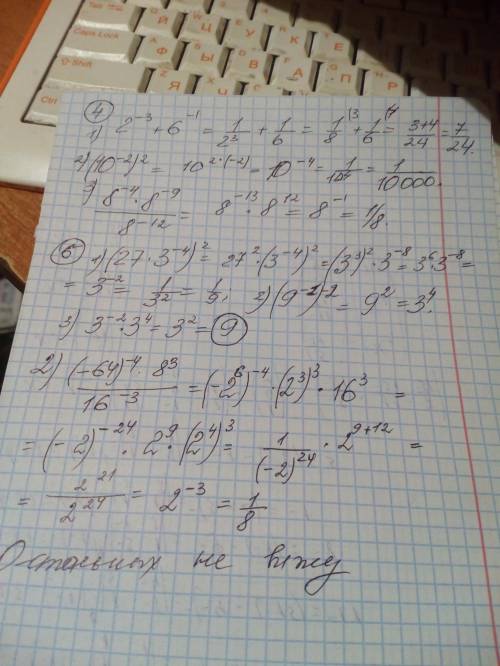 Tab
Caps Lock
Shift
Ctrl
Й Ц У К
Ф Ы В А
Я Ч С
④
1) 2⁻³ + 6⁻¹ = 1/2³ + 1/6 = 1/8 + 1/6 = (3+4)/24 = 7/24.
2) (10⁻²)² = 10^(2·(-2)) = 10⁻⁴ = 1/10⁴ = 1/10000.
3) (8⁻⁴ · 8⁻⁹)/8⁻¹² = 8⁻¹³ · 8¹² = 8⁻¹ = 1/8.
⑥ 1) (27 · 3⁻⁴)² = 27² · (3⁻⁴)² = (3³)² · 3⁻⁸ = 3⁶ · 3⁻⁸ =
= 3⁻² = 1/3² = 1/9; 2) (9⁻¹)⁻² = 9² = 3⁴.
3) 3⁻² · 3⁴ = 3² = 9
2) ((-64)⁻⁴ · 8³)/16⁻³ = (-2⁶)⁻⁴ · (2³)³ · 16³ =
= (-2)⁻²⁴ · 2⁹ · (2⁴)³ = 1/(-2)²⁴ · 2^(9+12) =
= 2²¹/2²⁴ = 2⁻³ = 1/8
Остальных не вижу